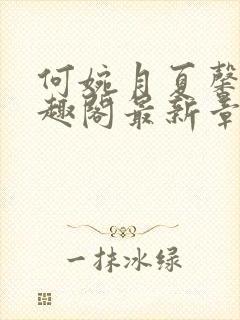 何婉月夏馨
趣阁最新章
一抹冰绿